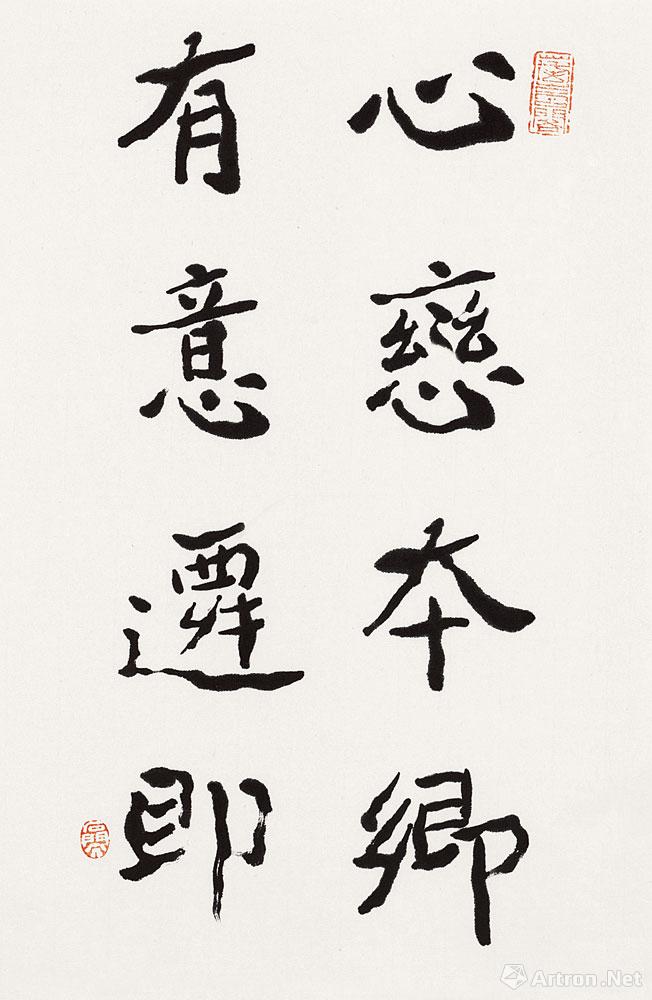 心戀本鄉
有意遷即
Artron.Net